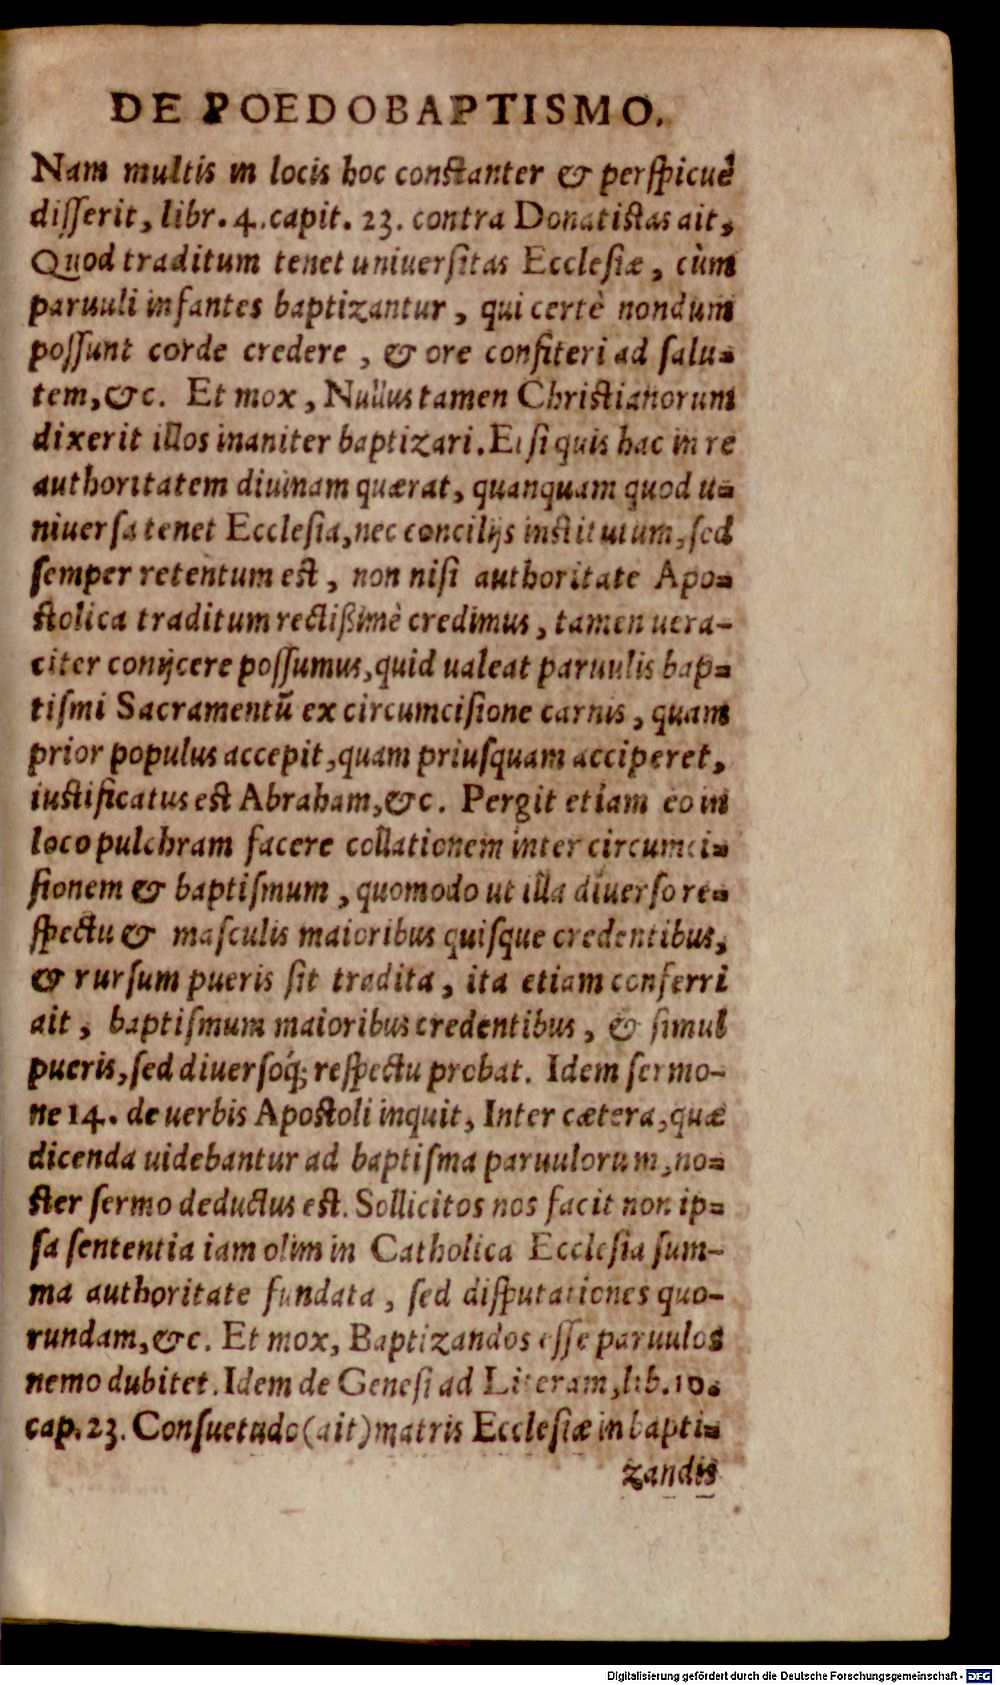 DE POEDOBAPTISMO.
Nam multis in locis hoc constanter & perspicuè
disserit, libr. 4. capit. 23. contra Donatistas ait,
Quod traditum tenet uniuersitas Ecclesiæ, cùm
paruuli infantes baptizantur, qui certè nondum
possunt corde credere, & ore confiteri ad salu-
tem, &c. Et mox, Nullus tamen Christianorum
dixerit illos inaniter baptizari. Et si quis hac in re
authoritatem diuinam quærat, quanquam quod u-
niuersa tenet Ecclesia, nec concilijs institutum, sed
semper retentum est, non nisi authoritate Apo-
stolica traditum rectißimè credimus, tamen uera-
citer conijcere possumus, quid ualeat paruulis bap-
tismi Sacramentũ ex circumcisione carnis, quam
prior populus accepit, quam priusquam acciperet,
iustificatus est Abraham, &c. Pergit etiam eo in
loco pulchram facere collationem inter circumci-
sionem & baptismum, quomodo ut illa diuerso re-
spectu & masculis maioribus quisque credentibus,
& rursum pueris sit tradita, ita etiam conferri
ait, baptismum maioribus credentibus, & simul
pueris, sed diuersoq́; respectu probat. Idem sermo-
ne 14. de uerbis Apostoli inquit, Inter cætera, quæ
dicenda uidebantur ad baptisma paruulorum, no-
ster sermo deductus est. Sollicitos nos facit non ip-
sa sententia iam olim in Catholica Ecclesia sum-
ma authoritate fundata, sed disputationes quo-
rundam, &c. Et mox, Baptizandos esse paruulos
nemo dubitet. Idem de Genesi ad Literam, lib. 10.
cap. 23. Consuetudo (ait) matris Ecclesiæ in bapti-
zandis
Digitalisierung gefördert durch die Deutsche Forschungsgemeinschaft - DFG